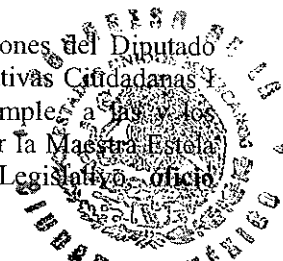 ones del Diputado
tivas Ciudadanas I
mple, a las y los
r la Maestra Estela
Legislativo, oficio